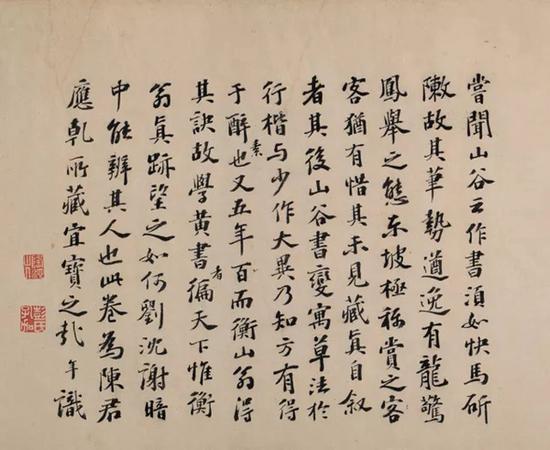 嘗聞山谷云作書須如快馬斫
敶故其筆勢遒逸有龍驚
鳳舉之態東坡極稱賞之客
客猶有惜其未見藏真自敘
者其後山谷書變寓草法於
行楷与少作大異乃知方有得
于醉素也又五年百而衡山翁得
其訣故學黃書者徧天下惟衡
翁真跡望之如何劉沈謝暗
中能辨其人也此卷為陳君
應乾所藏宜寶之哉 年識